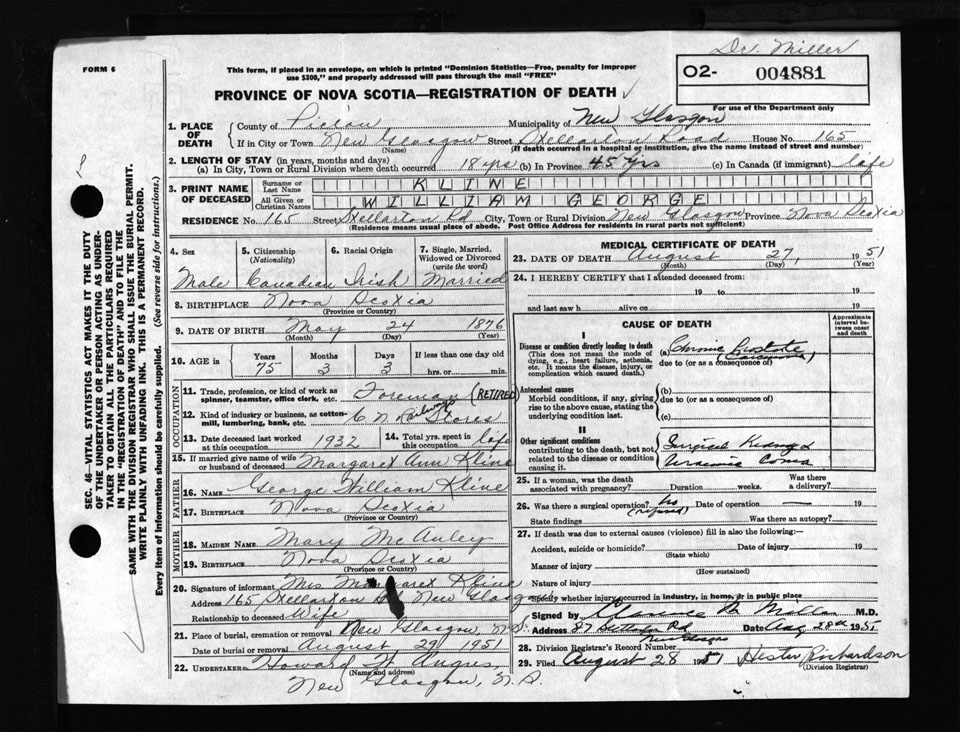 Dr. Miller
FORM 6
This form, if placed in an envelope, on which is printed "Dominion Statistics—Free, penalty for improper
use $300," and properly addressed will pass through the mail "FREE"
O2- 004881
For use of the Department only
PROVINCE OF NOVA SCOTIA—REGISTRATION OF DEATH ✓
1. PLACE OF DEATH { County of Pictou Municipality of New Glasgow
If in City or Town New Glasgow Street Stellarton Road House No. 165
(Name) (If death occurred in a hospital or institution, give the name instead of street and number)
2. LENGTH OF STAY (in years, months and days)
(a) In City, Town or Rural Division where death occurred 18 yrs (b) In Province 45 yrs (c) In Canada (if immigrant) life
3. PRINT NAME OF DECEASED { Surname or Last Name KLINE
All Given or Christian Names WILLIAM GEORGE
RESIDENCE No. 165 Street Stellarton Rd City, Town or Rural Division New Glasgow Province Nova Scotia
(Residence means usual place of abode. Post Office Address for residents in rural parts not sufficient)
4. Sex 5. Citizenship (Nationality) 6. Racial Origin 7. Single, Married, Widowed or Divorced (write the word)
Male Canadian Irish Married
8. BIRTHPLACE Nova Scotia
(Province or Country)
9. DATE OF BIRTH May 24 1876
(Month) (Day) (Year)
10. AGE in Years Months Days If less than one day old
75 3 3 hrs. or min.
OCCUPATION
11. Trade, profession, or kind of work as spinner, teamster, office clerk, etc. Foreman (RETIRED)
12. Kind of industry or business, as cotton-mill, lumbering, bank, etc. C N Railways Stores
13. Date deceased last worked at this occupation 1932 14. Total yrs. spent in this occupation life
15. If married give name of wife or husband of deceased Margaret Ann Kline
FATHER
16. NAME George William Kline
17. BIRTHPLACE Nova Scotia
(Province or Country)
MOTHER
18. MAIDEN NAME Mary McAuley
19. BIRTHPLACE Nova Scotia
(Province or Country)
20. Signature of informant Mrs Margaret Kline
Address 165 Stellarton Rd New Glasgow
Relationship to deceased Wife
21. Place of burial, cremation or removal New Glasgow, N.S.
Date of burial or removal August 29 1951
22. UNDERTAKER Howard H. Angus,
(Name and address)
New Glasgow, N.S.
MEDICAL CERTIFICATE OF DEATH
23. DATE OF DEATH August 27, 1951
(Month) (Day) (Year)
24. I HEREBY CERTIFY that I attended deceased from:
19 to 19
and last saw h alive on 19
CAUSE OF DEATH
Approximate interval between onset and death
Disease or condition directly leading to death (a) Chronic Prostate
(This does not mean the mode of dying, e.g., heart failure, asthenia, etc. It means the disease, injury, or complication which caused death.)
due to (or as a consequence of) (Carcinoma)
Antecedent causes (b)
Morbid conditions, if any, giving rise to the above cause, stating the underlying condition last.
due to (or as a consequence of)
(c)
II
Other significant conditions contributing to the death, but not related to the disease or condition causing it.
Surgical Kidney
Uraemic Coma
25. If a woman, was the death associated with pregnancy? Duration weeks. Was there a delivery?
26. Was there a surgical operation? No (refused) Date of operation 19
State findings Was there an autopsy?
27. If death was due to external causes (violence) fill in also the following:—
Accident, suicide or homicide? Date of injury 19
(State which)
Manner of injury
(How sustained)
Nature of injury
Specify whether injury occurred in industry, in home, or in public place
Signed by Clarence M Miller M.D.
Address 87 Stellarton Rd Date Aug 28th 1951
New Glasgow
28. Division Registrar's Record Number
29. Filed August 28 1951 Hester Richardson
(Division Registrar)
SEC. 46—VITAL STATISTICS ACT MAKES IT THE DUTY
OF THE UNDERTAKER OR PERSON ACTING AS UNDER-
TAKER TO OBTAIN ALL THE PARTICULARS REQUIRED
IN THE "REGISTRATION OF DEATH" AND TO FILE THE
SAME WITH THE DIVISION REGISTRAR WHO SHALL ISSUE THE BURIAL PERMIT.
WRITE PLAINLY WITH UNFADING INK. THIS IS A PERMANENT RECORD.
Every item of Information should be carefully supplied. (See reverse side for instructions.)